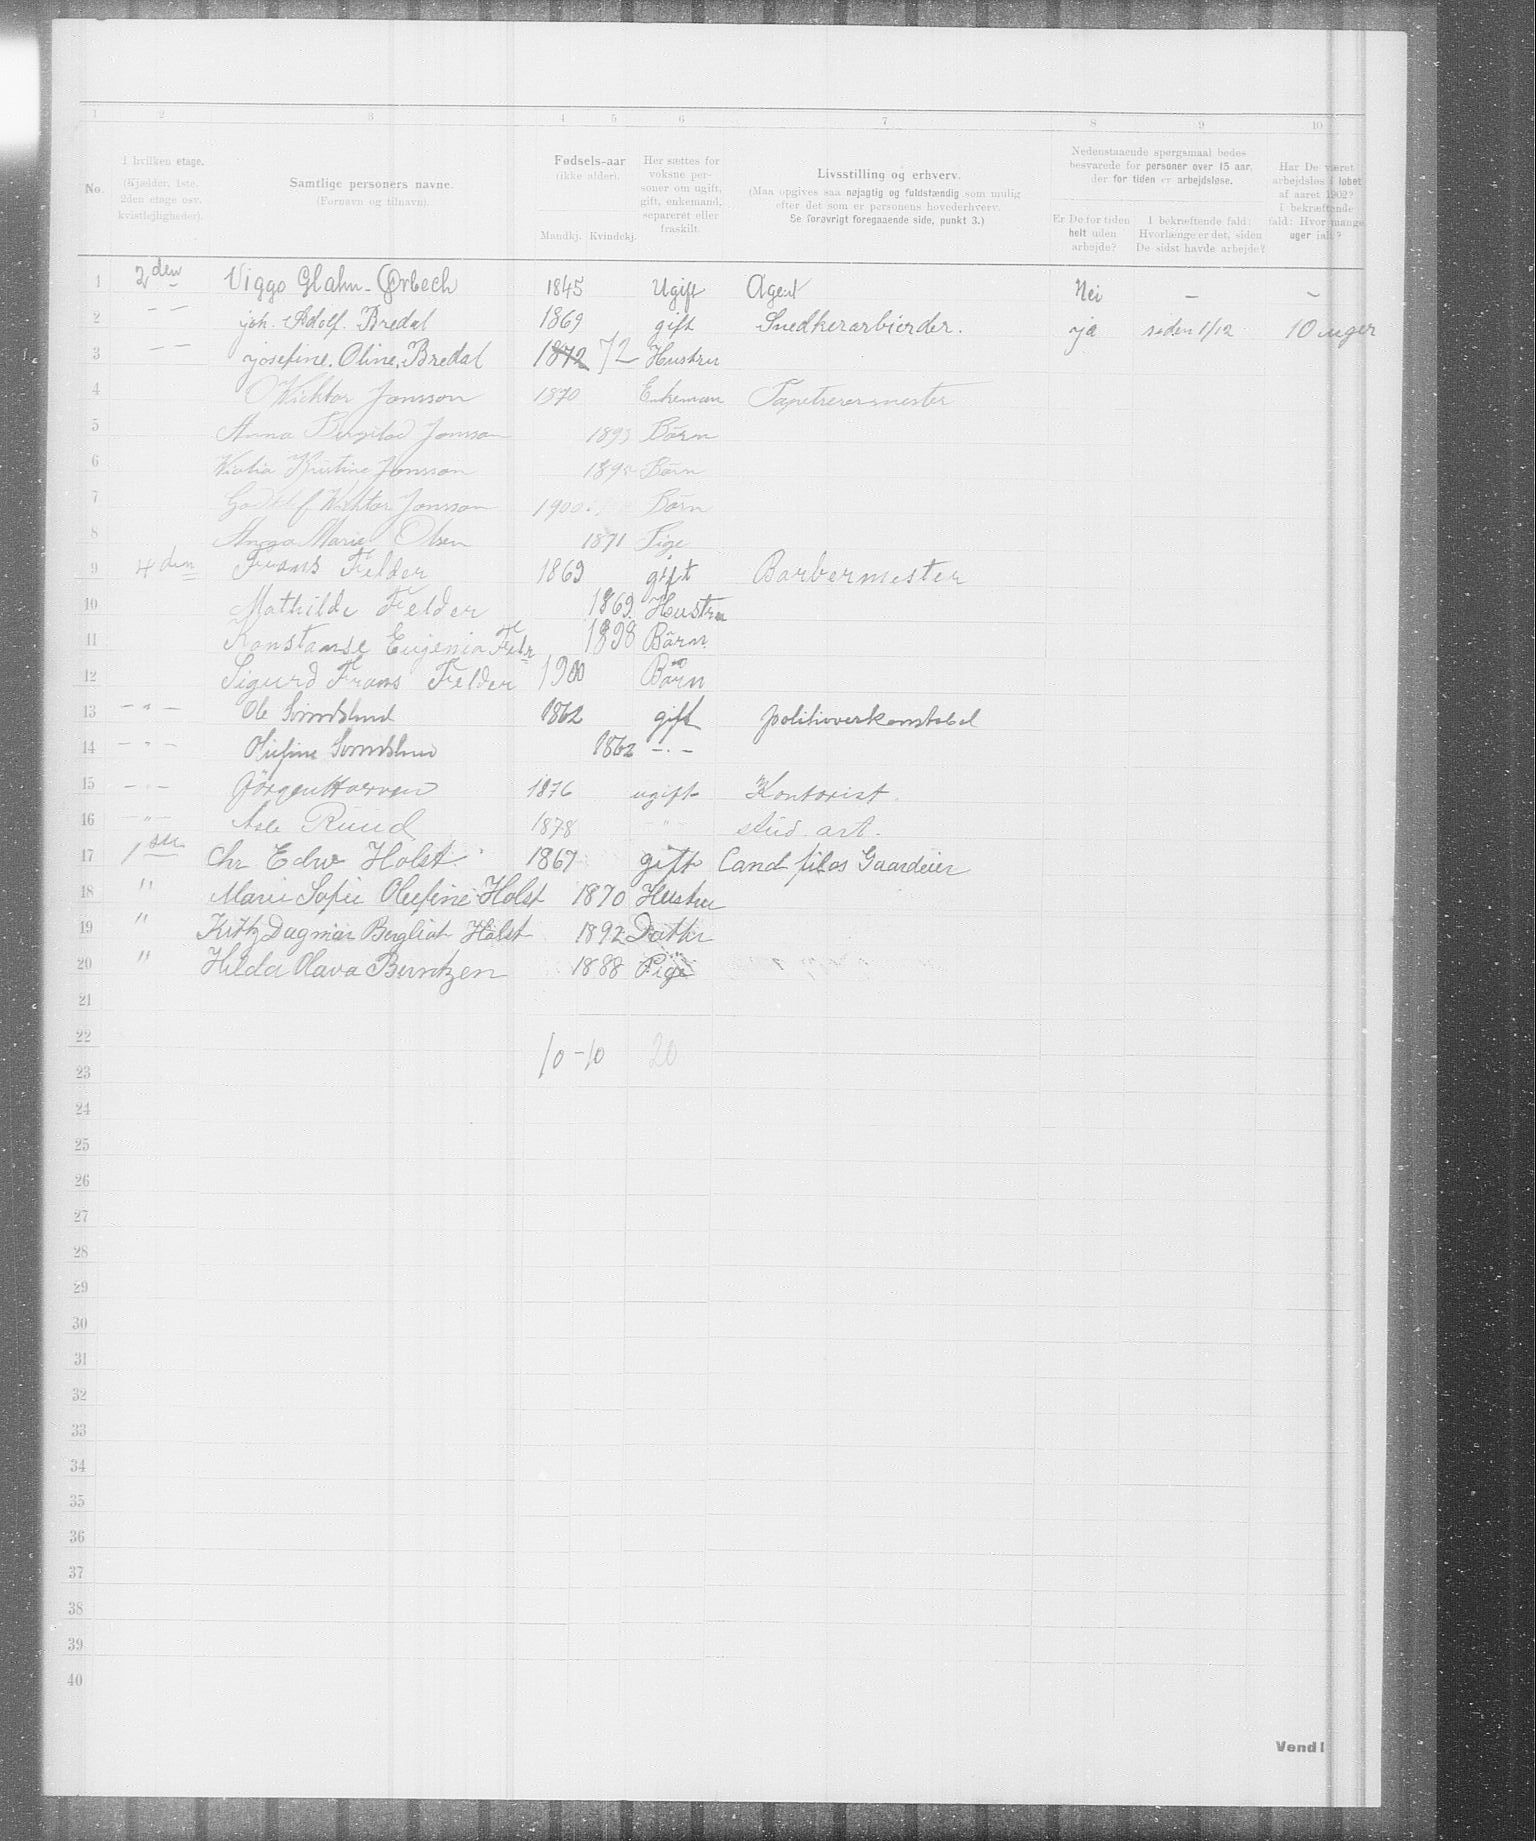 1 2 3 4 5 6 7 8 9 10
No.
I hvilken etage.
(Kjælder, 1ste,
2den etage osv.
kvistlejligheder).
Samtlige personers navne.
(Fornavn og tilnavn).
Fødsels-aar
(ikke alder).
Mandkj. Kvindekj.
Her sættes for
voksne per-
soner om ugift,
gift, enkemand,
separeret eller
fraskilt.
Livsstilling og erhverv.
(Maa opgives saa nøjagtig og fuldstændig som mulig
efter det som er personens hovederhverv.
Se forøvrigt foregaaende side, punkt 3.)
Nedenstaaende spørgsmaal bedes
besvarede for personer over 15 aar,
der for tiden er arbejdsløse.
Er De for tiden
helt uden
arbejde?
I bekræftende fald:
Hvorlænge er det, siden
De sidst havde arbejde?
Har De været
arbejdsløs i løbet
af aaret 1902?
I bekræftende
fald: Hvor mange
uger ialt?
1 2den Viggo Glahn-Ørbech 1845 Ugift Agent Nei — —
2 — — joh. Adolf. Bredal 1869 gift Snedkerarbierder. ja siden 1/12 10 uger
3 — — josefine. Oline. Bredal 1872 72 Hustru
4 Wichtor Jonsson 1870 Enkeman Tapetserermester
5 Anna Jonsson 1893 Börn
6 Kristine Jonsson Börn
7 Wichtor Jonsson 1900 Börn
8 Anna Marie Olsen 1871 Pige
9 4den Frans Felder 1869 gift Barbermester
10 Mathilde Felder 1869. Hustru
11 Konstanse Eugenia Feldr 1898 Börn
12 Sigurd Frans Felder 1900 Börn
13 — " — Ole 1862 gift politioverkonstabel
14 — " — Olufine 1862 — . —
15 — " — Jörgen 1876 ugift Kontorist.
16 — " — Asle Ruud 1878 — " — stud. art.
17 1ste Chr Edw Holst 1867 gift Cand filos Gaardeier
18 " Marie Sofie Olufine Holst 1870 Hustru
19 " Kitty Dagmar Bergliot Holst 1892 Datter
20 " Hilda Olava Buntzen 1888 Pige
21
22
10 - 10 20
23
24
25
26
27
28
29
30
31
32
33
34
35
36
37
38
39
40
Vend!